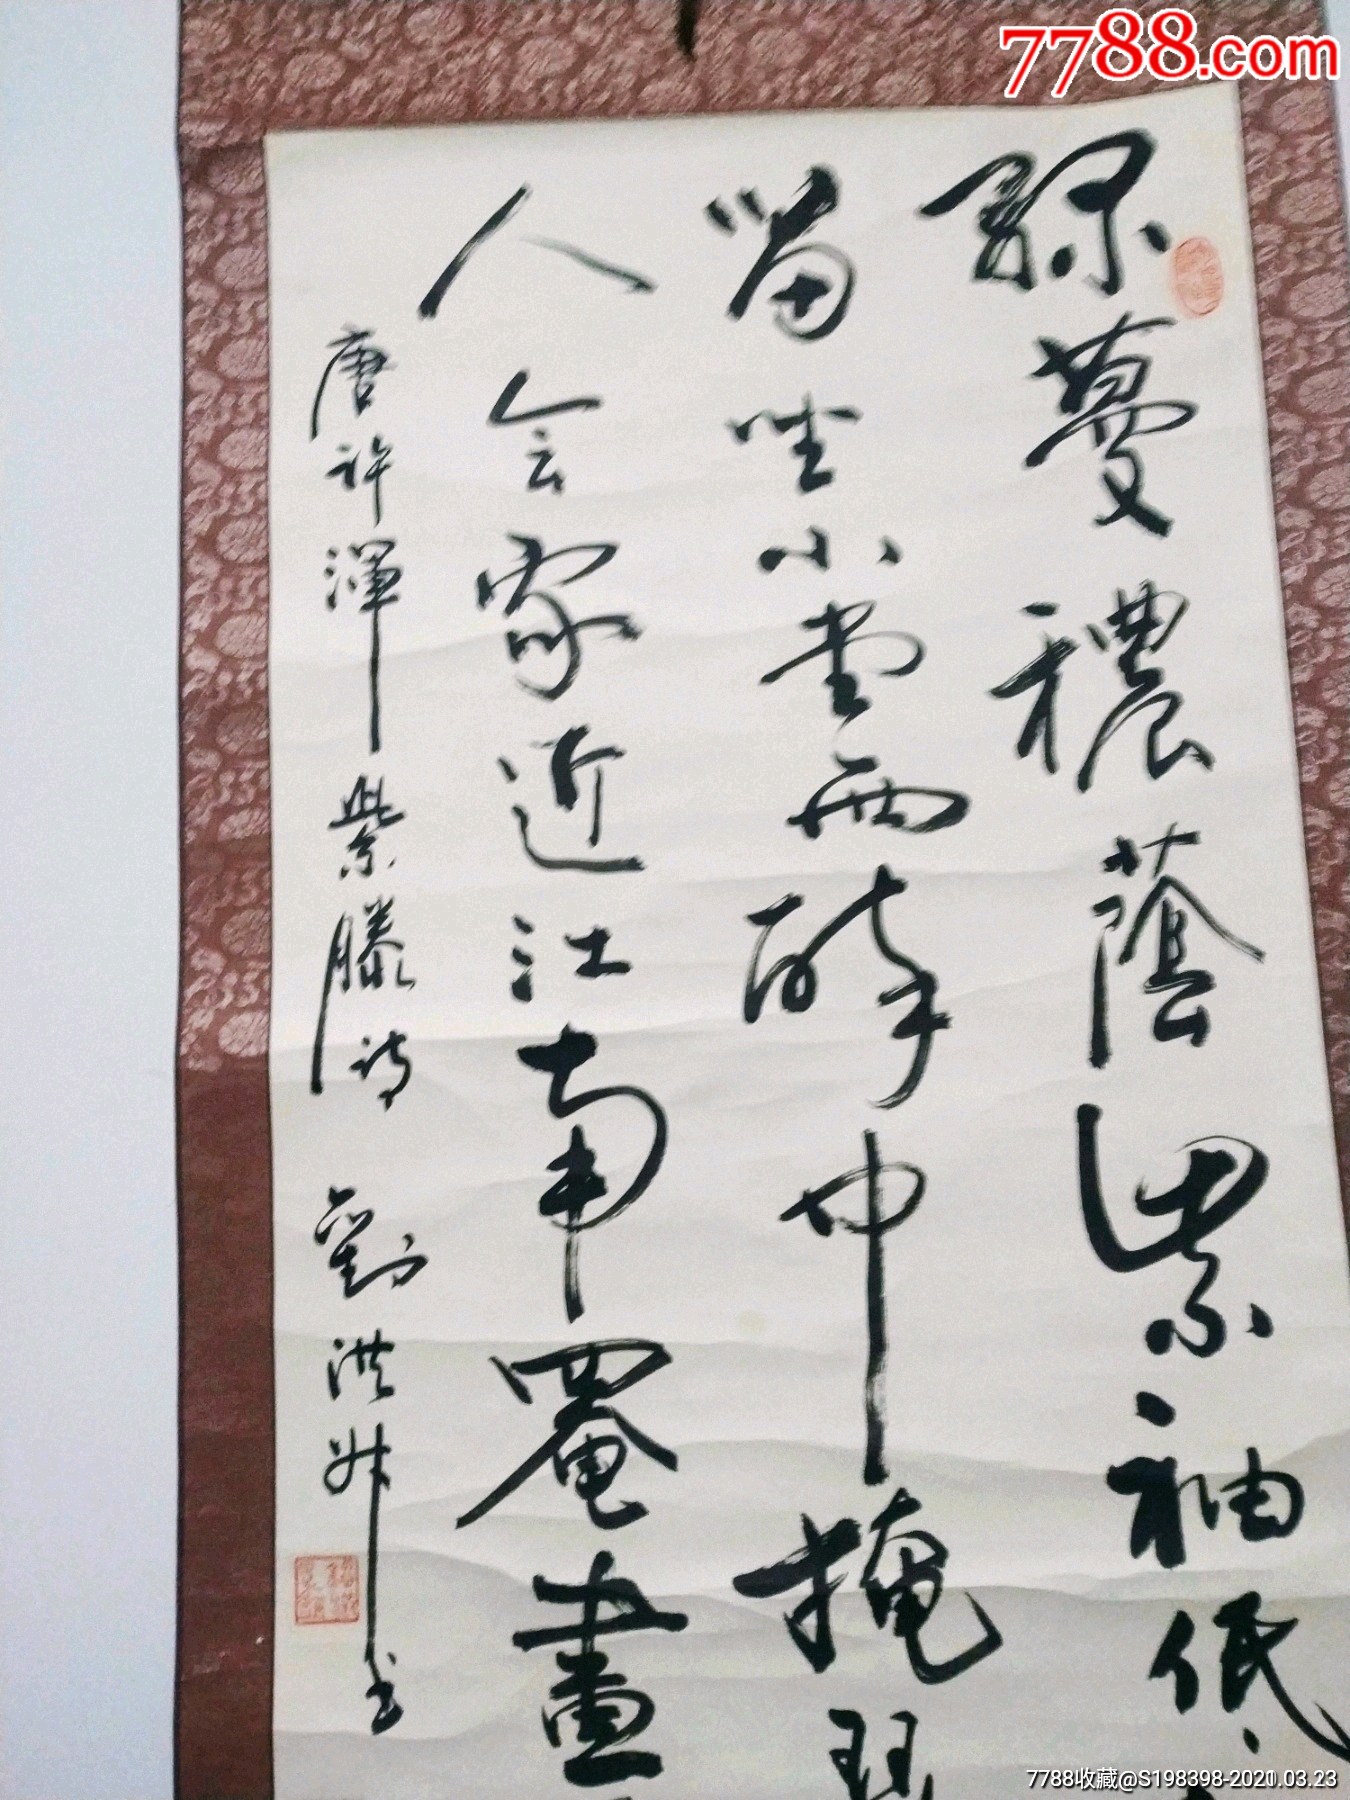 7788.com
綠蔓穠蔭紫袖低
留坐小堂西醉中掩
人会家近江南罨畫
唐許渾紫藤詩 劉洪 书
7788收藏@S198398-2021.03.23